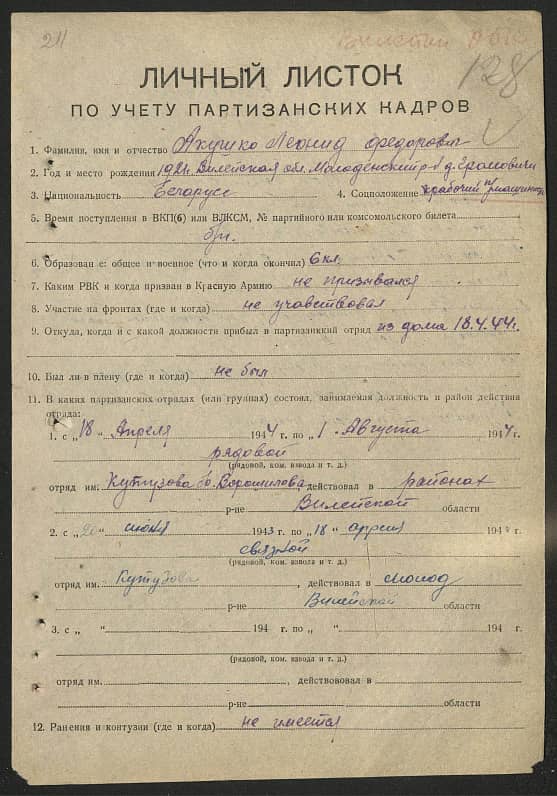 211
128
ЛИЧНЫЙ ЛИСТОК
ПО УЧЕТУ ПАРТИЗАНСКИХ КАДРОВ
1. Фамилия, имя и отчество Акушко Леонид Федорович
2. Год и место рождения 192 г. Вилейская обл. Молодечнский р-н д.
3. Национальность Беларусс 4. Соцположение рабочий
5. Время поступления в ВКП(б) или ВЛКСМ, № партийного или комсомольского билета
б/п.
6. Образование: общее и военное (что и когда окончил) 6 кл.
7. Каким РВК и когда призван в Красную Армию не призывался
8. Участие на фронтах (где и когда) не учавствовал
9. Откуда, когда и с какой должности прибыл в партизанский отряд из дома 18.4.44 г.
10. Был ли в плену (где и когда) не был
11. В каких партизанских отрядах (или группах) состоял, занимаемая должность и район действия
отряда:
1. с „18“ Апреля 1944 г. по 1 Августа 1944 г.
рядовой
(рядовой, ком. взвода и т. д.)
отряд им. Кутузова бр. Ворошилова, действовал в районах
р-не Вилейской области
2. с „20“ июня 1943 г. по „18“ апреля 194 г.
связной
(рядовой, ком. взвода и т. д.)
отряд им. Кутузова, действовал в молод
р-не Вилейской области
3. с „ “ 194 г. по „ “ 194 г.
(рядовой, ком. взвода и т. д.)
отряд им. , действовал в
р-не области
12. Ранения и контузии (где и когда) не имеется